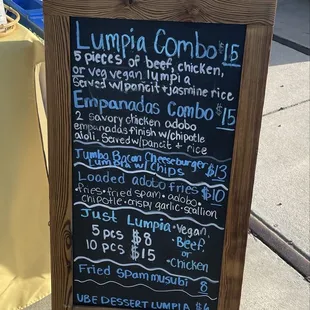 Lumpia Combo $15
5 pieces of beef, chicken,
or veg vegan lumpia
Served w/pancit + Jasmine rice
Empanadas Combo $15
2 savory chicken adobo
empanadas finish w/chipotle
aioli. Served w/pancit + rice
Jumbo Bacon Cheeseburger $13
Lumpia w/ chips
Loaded adobo fries $10
fries · fried spam · adobo ·
chipotle · crispy garlic · scallion
Just Lumpia · Vegan,
5 pcs $8 Beef,
or
10 pcs $15 Chicken
Fried Spam musubi 8
UBE DESSERT LUMPIA $6